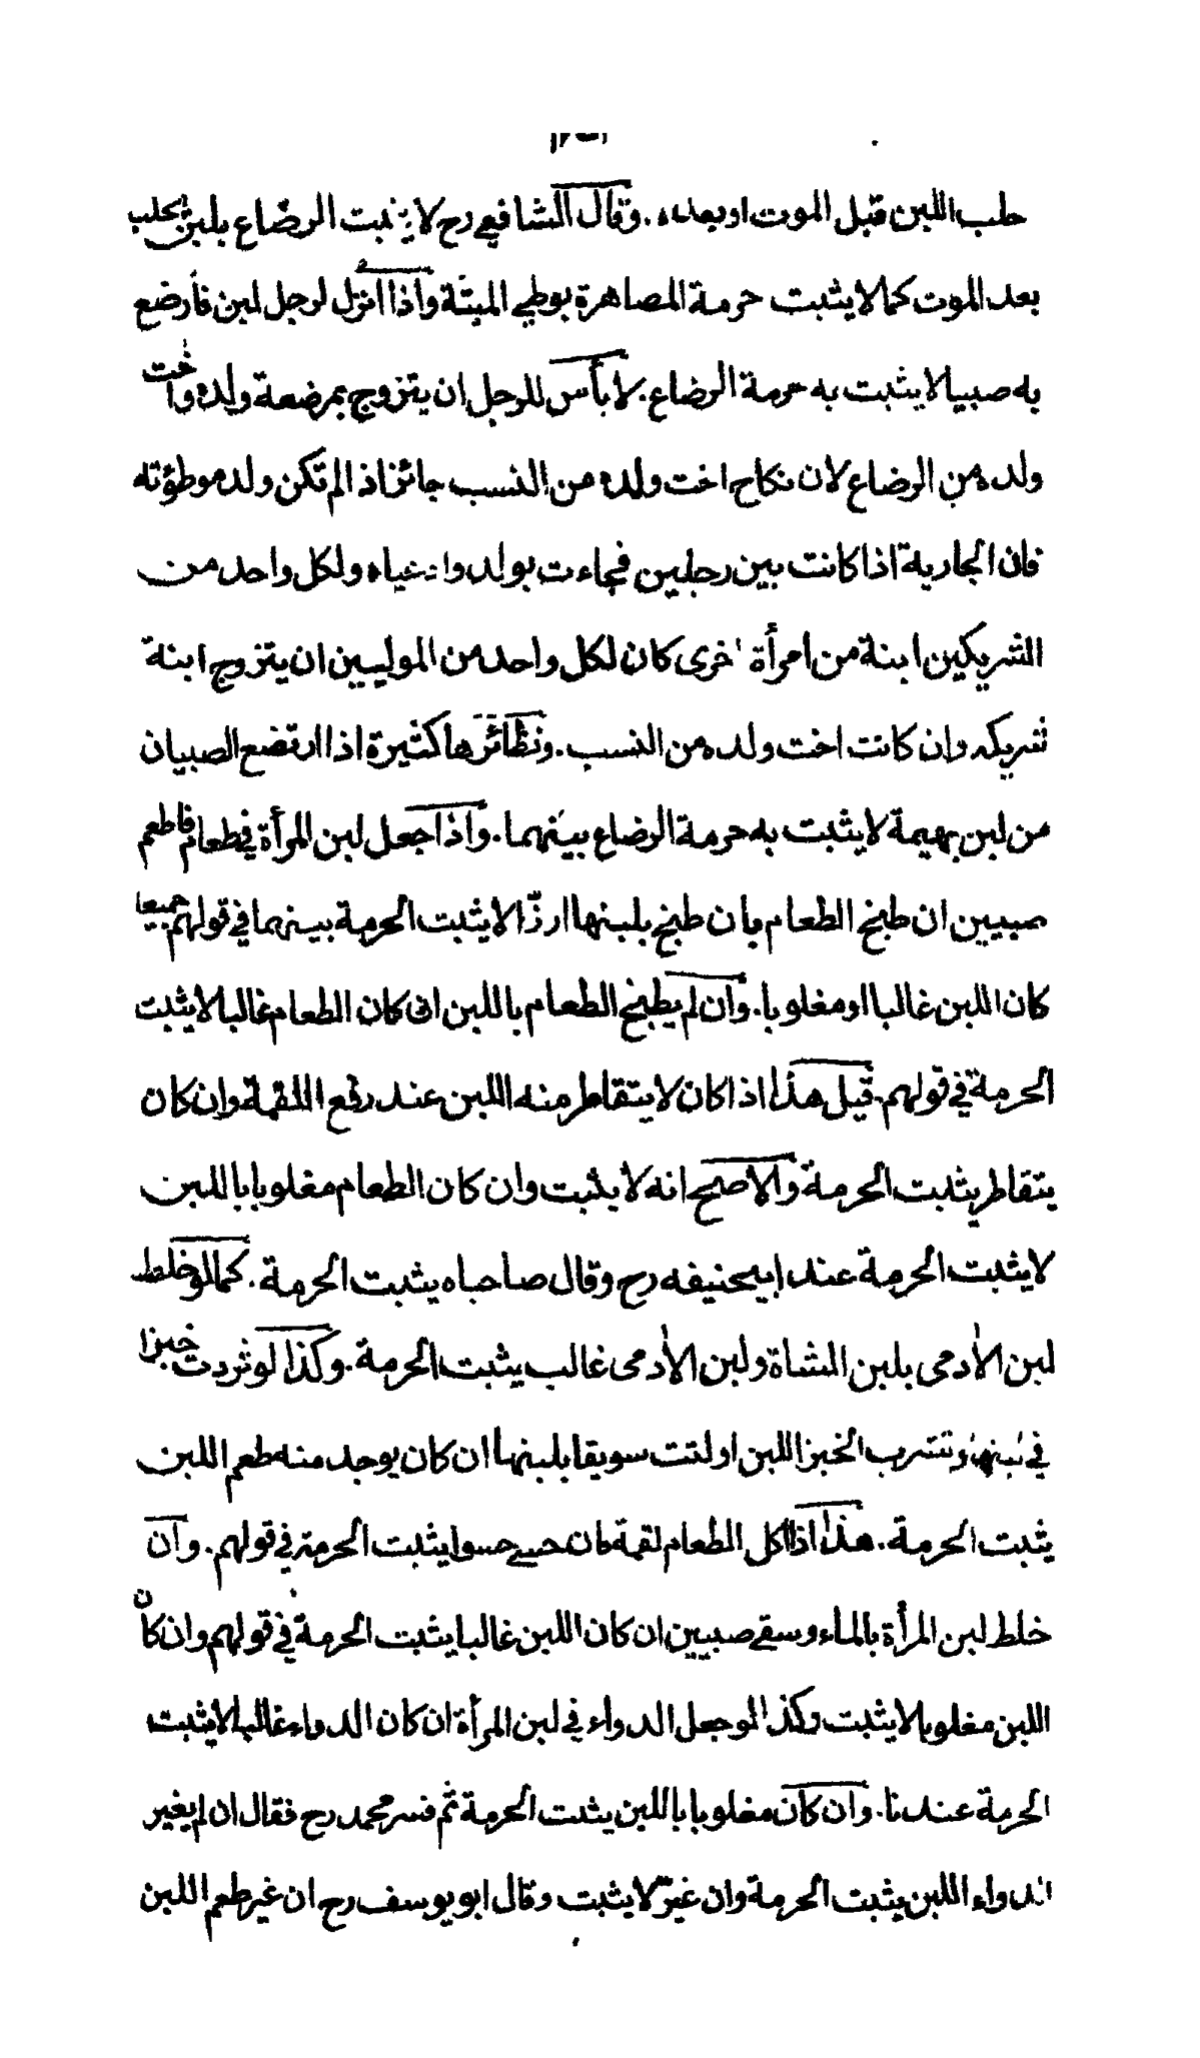 حلب اللبن قبل الموت او بعده. وقال الشافعي رح لا يثبت الرضاع بلبن يحلب
بعد الموت كما لا يثبت حرمة المصاهرة بوطي الميتة واذا انزل لرجل لبن فارضع
به صبيا لا يثبت به حرمة الرضاع. لا بأس للرجل ان يتزوج بمرضعة ولده واخت
ولده من الرضاع لان نكاح اخت ولده من النسب جائز اذا لم تكن ولد موطؤته
فان الجارية اذا كانت بين رجلين فجاءت بولد وادعياه ولكل واحد من
الشريكين ابنة من امرأة اخرى كان لكل واحد من الموليين ان يتزوج ابنة
شريكه وان كانت اخت ولده من النسب. ونظائرها كثيرة اذا ارتضع الصبيان
من لبن بهيمة لا يثبت به حرمة الرضاع بينهما. واذا جعل لبن المرأة في طعام فاطعم
صبيين ان طبخ الطعام بان طبخ بلبنها ارزّا لا يثبت الحرمة بينهما في قولهم جميعا
كان اللبن غالبا او مغلوبا. وان لم يطبخ الطعام باللبن ان كان الطعام غالبا لا يثبت
الحرمة في قولهم. قيل هذا اذا كان لا يتقاطر منه اللبن عند رفع اللقمة وان كان
يتقاطر يثبت الحرمة والاصح انه لا يثبت وان كان الطعام مغلوبا باللبن
لا يثبت الحرمة عند ابيحنيفه رح وقال صاحباه يثبت الحرمة. كما لو خلط
لبن الآدمى بلبن الشاة ولبن الآدمى غالب يثبت الحرمة. وكذا لو ثردت خبزا
في لبنها وتشرب الخبز اللبن او لتت سويقا بلبنها ان كان يوجد منه طعم اللبن
يثبت الحرمة. هذا اذا اكل الطعام لقمة فان حسى حسوا يثبت الحرمة في قولهم. وان
خلط لبن المرأة بالماء وسقى صبيين ان كان اللبن غالبا يثبت الحرمة في قولهم وان كان
اللبن مغلوبا لا يثبت وكذا لو جعل الدواء في لبن المرأة ان كان الدواء غالبا لا يثبت
الحرمة عندنا. وان كان مغلوبا باللبن يثبت الحرمة ثم فسر محمد رح فقال ان لم يغير
الدواء اللبن يثبت الحرمة وان غيرّ لا يثبت وقال ابو يوسف رح ان غير طعم اللبن